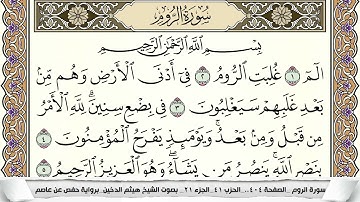 سُورَةُ الرُّومِ
بِسْمِ اللَّهِ الرَّحْمَٰنِ الرَّحِيمِ
الٓمٓ ١ غُلِبَتِ الرُّومُ ٢ فِىٓ أَدْنَى الْأَرْضِ وَهُم مِّنۢ
بَعْدِ غَلَبِهِمْ سَيَغْلِبُونَ ٣ فِى بِضْعِ سِنِينَ ۗ لِلَّهِ الْأَمْرُ
مِن قَبْلُ وَمِنۢ بَعْدُ ۚ وَيَوْمَئِذٍ يَفْرَحُ الْمُؤْمِنُونَ ٤
بِنَصْرِ اللَّهِ ۚ يَنصُرُ مَن يَشَآءُ ۖ وَهُوَ الْعَزِيزُ الرَّحِيمُ ٥
سورة الروم .. الصفحة ٤٠٤ .. الحزب ٤١ .. الجزء ٢١ .. بصوت الشيخ هيثم الدخين .. برواية حفص عن عاصم